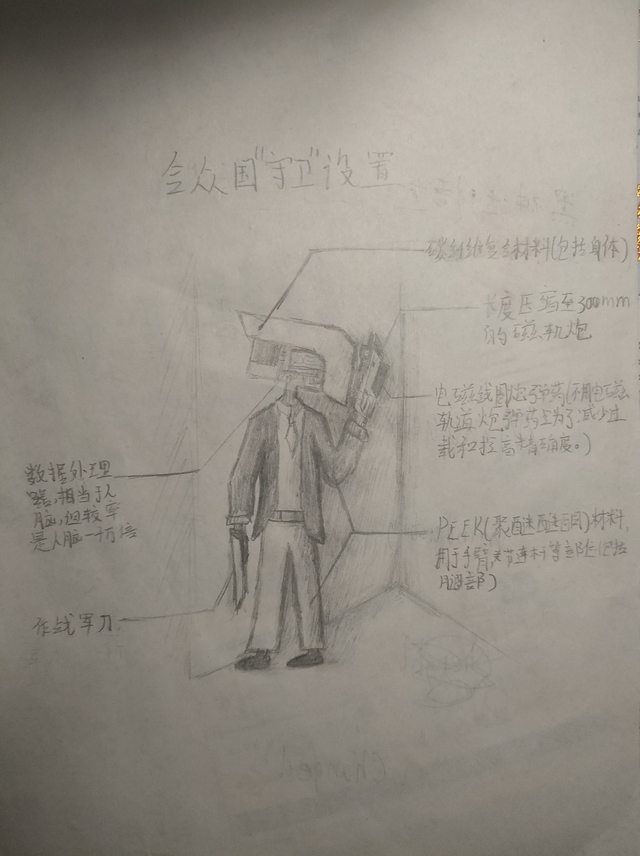 合众国"守卫"设置
碳纤维复合材料(包括身体)
长度压缩至300mm
的磁轨炮
电磁线圈炮弹药(不用电磁
轨道炮弹药是为了减少过
载和提高精确度。)
数据处理
器,相当于人
脑,但效率
是人脑一万倍
PEEK(聚醚醚酮)材料,
用于手臂,关节连杆等部位(包括
腿部)
作战军刀